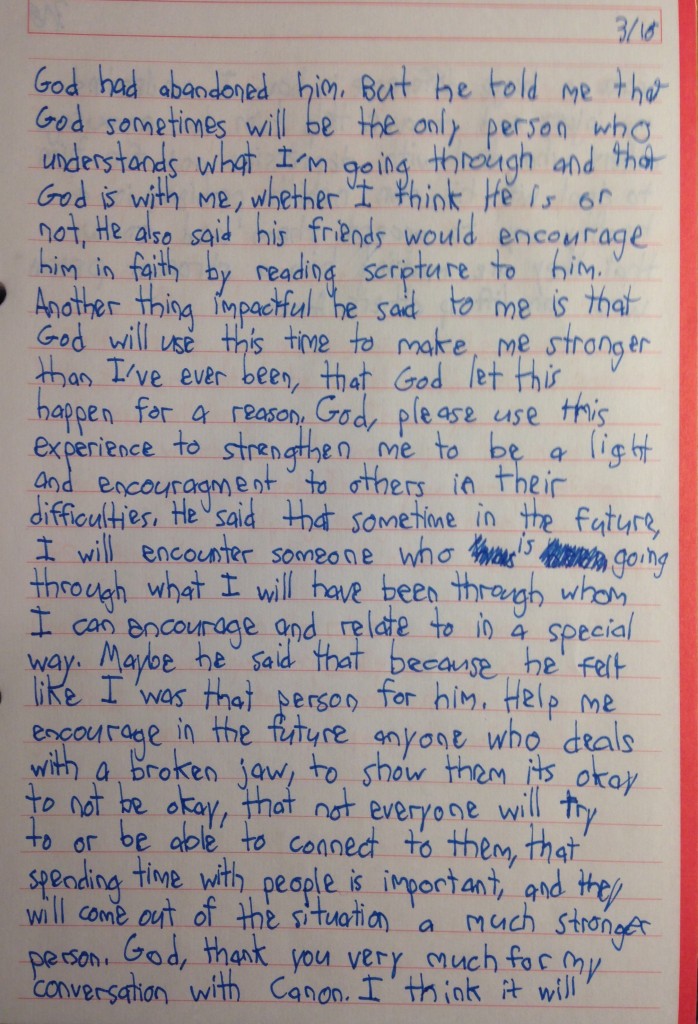 3/18
God had abandoned him. But he told me that
God sometimes will be the only person who
understands what I'm going through and that
God is with me, whether I think He is or
not. He also said his friends would encourage
him in faith by reading scripture to him.
Another thing impactful he said to me is that
God will use this time to make me stronger
than I've ever been, that God let this
happen for a reason. God, please use this
experience to strengthen me to be a light
and encouragment to others in their
difficulties. He said that sometime in the future,
I will encounter someone who is going
through what I will have been through whom
I can encourage and relate to in a special
way. Maybe he said that because he felt
like I was that person for him. Help me
encourage in the future anyone who deals
with a broken jaw, to show them its okay
to not be okay, that not everyone will try
to or be able to connect to them, that
spending time with people is important, and they
will come out of the situation a much stronger
person. God, thank you very much for my
conversation with Canon. I think it will